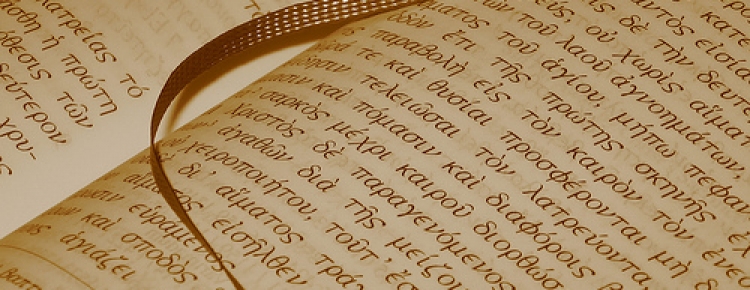 λατρείας τό
ἡ πρώτη
τῶν
δεύτερον
χρυ-
κατε
δὲ τὴν δευτ
οὐ χωρὶς αἵμα
τοῦ λαοῦ ἀγνοημάτων,
τοῦ ἁγίου, μήπω πεφαν
ὁδὸν ἔτι τῆς πρώτης σκηνῆς
παραβολὴ εἰς τὸν καιρὸν τὸν ἐνε
τε καὶ θυσίαι προσφέρονται μὴ
τελειῶσαι τὸν λατρεύοντα,
καὶ πόμασιν καὶ διαφόροις β
σαρκὸς μέχρι καιροῦ διορθώσ
Χριστὸς δὲ παραγενόμενος
ἀγαθῶν διὰ τῆς μείζον
χειροποιήτου, τοῦτ' ἔσ
δι' αἵματος τρά
εἰσῆλθεν
εὑράμενος
καὶ σποδὸς
ἁγιάζει